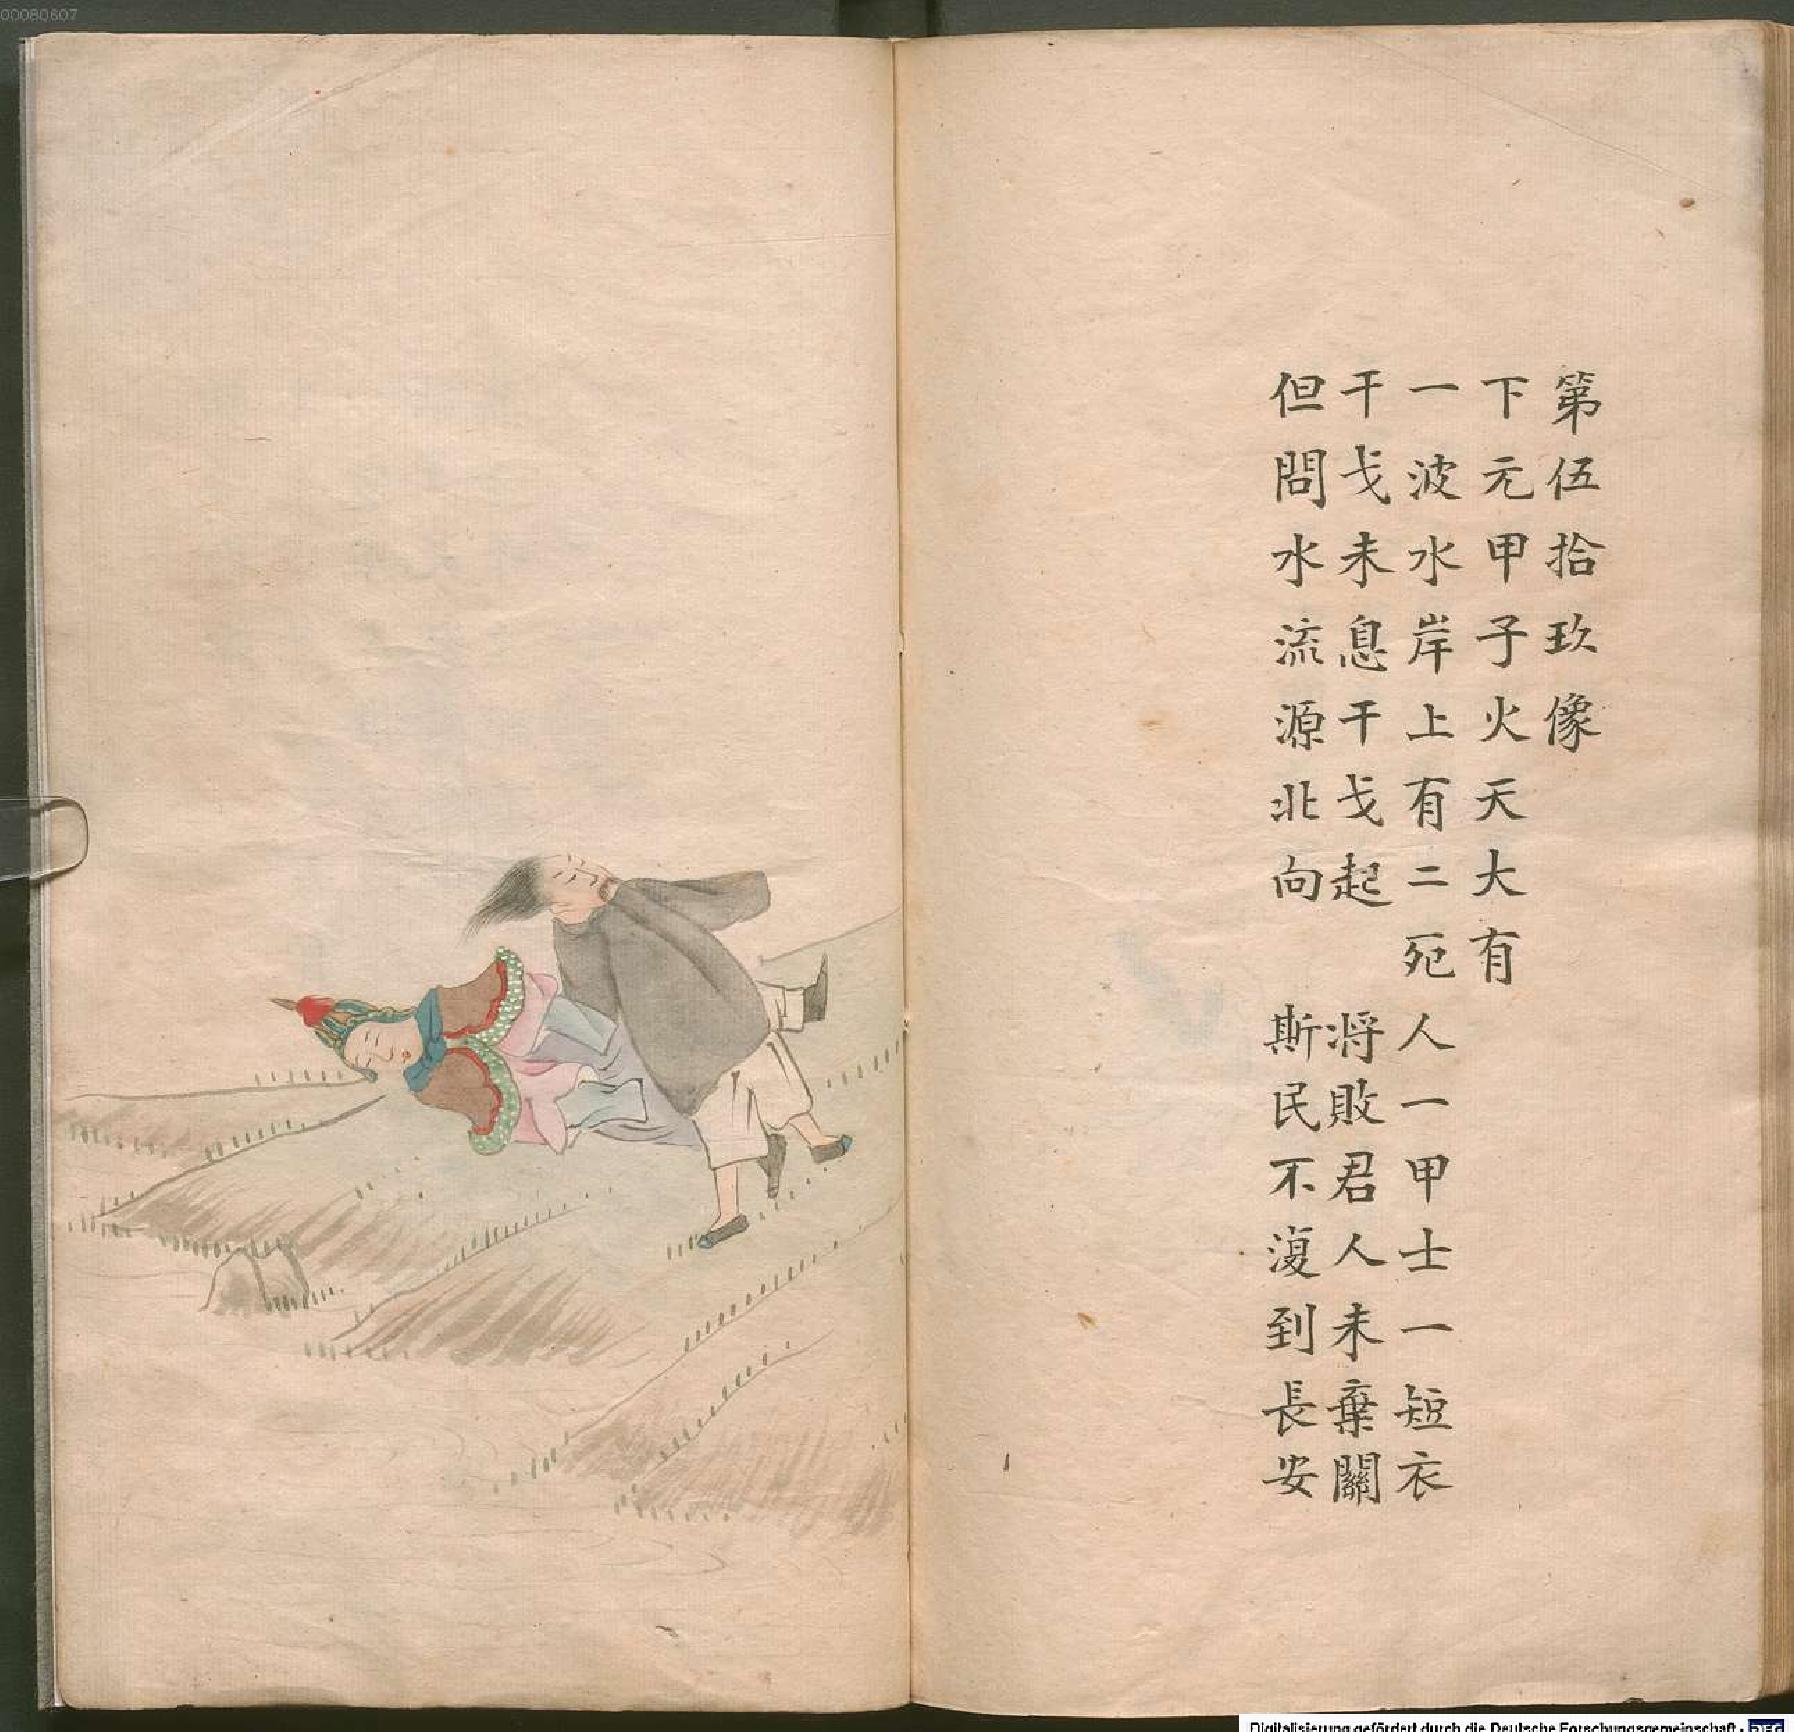 第伍拾玖像
下元甲子火天大有
一波水岸上有二死人一甲士一短衣
干戈未息干戈起　將敗君人未棄關
但問水流源北向　斯民不復到長安
00080607
Digitalisierung gefördert durch die Deutsche Forschungsgemeinschaft - DFG